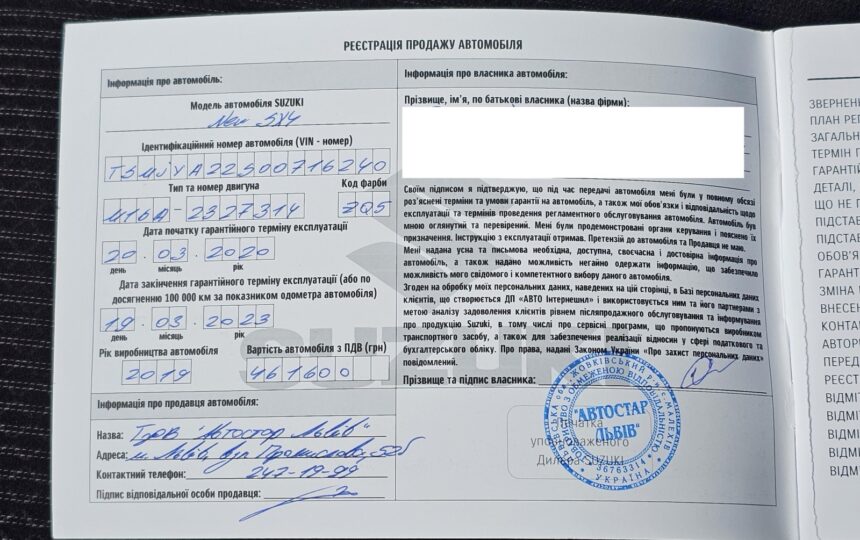 РЕЄСТРАЦІЯ ПРОДАЖУ АВТОМОБІЛЯ
Інформація про автомобіль:
Модель автомобіля SUZUKI
New SX4
Ідентифікаційний номер автомобіля (VIN - номер)
TSMJYA22S00716240
Тип та номер двигуна
Код фарби
M16A-2327314
ZQ5
Дата початку гарантійного терміну експлуатації
20.03.2020
день місяць рік
Дата закінчення гарантійного терміну експлуатації (або по
досягненню 100 000 км за показником одометра автомобіля)
19.03.2023
день місяць рік
Рік виробництва автомобіля
Вартість автомобіля з ПДВ (грн)
2019
461600
Інформація про продавця автомобіля:
Назва: ТзОВ "Автостар Львів"
Адреса: м. Львів, вул.
Контактний телефон: 247-19-99
Підпис відповідальної особи продавця:
Інформація про власника автомобіля:
Прізвище, ім'я, по батькові власника (назва фірми):
Своїм підписом я підтверджую, що під час передачі автомобіля мені були у повному обсязі
роз'яснені терміни та умови гарантії на автомобіль, а також мої обов'язки і відповідальність щодо
експлуатації та термінів проведення регламентного обслуговування автомобіля. Автомобіль був
мною оглянутий та перевірений. Мені були продемонстровані органи керування і пояснено їх
призначення. Інструкцію з експлуатації отримав. Претензій до автомобіля та Продавця не маю.
Мені надана усна та письмова необхідна, доступна, своєчасна і достовірна інформація про
автомобіль, а також надано можливість негайно одержати інформацію, що забезпечило
можливість мого свідомого і компетентного вибору даного автомобіля.
Згоден на обробку моїх персональних даних, наведених на цій сторінці, в Базі персональних даних
клієнтів, що створюється ДП «АВТО Інтернешнл» і використовується ним та його партнерами з
метою аналізу задоволення клієнтів рівнем післяпродажного обслуговування та інформування
про продукцію Suzuki, в тому числі про сервісні програми, що пропонуються виробником
транспортного засобу, а також для забезпечення реалізації відносин у сфері податкового та
бухгалтерського обліку. Про права, надані Законом України «Про захист персональних даних»
повідомлений.
Прізвище та підпис власника:
Печатка
уповноваженого
Дилера SUZUKI
"АВТОСТАР
ЛЬВІВ"
36763314
УКРАЇНА
ТОВАРИСТВО З ОБМЕЖЕНОЮ ВІДПОВІДАЛЬНІСТЮ
SUZUKI
ЗВЕРНЕН
ПЛАН РЕГ
ЗАГАЛЬН
ТЕРМІН Г
ГАРАНТІЙ
ДЕТАЛІ,
ЩО НЕ Г
ПІДСТАВ
ПІДСТАВ
ОБОВ'Я
ГАРАНТ
ЗМІНА
ВНЕСЕН
КОНТА
АВТОРИ
ПЕРЕД
РЕЄСТ
ВІДМІ
ВІДМІ
ВІДМІ
ВІДМІ